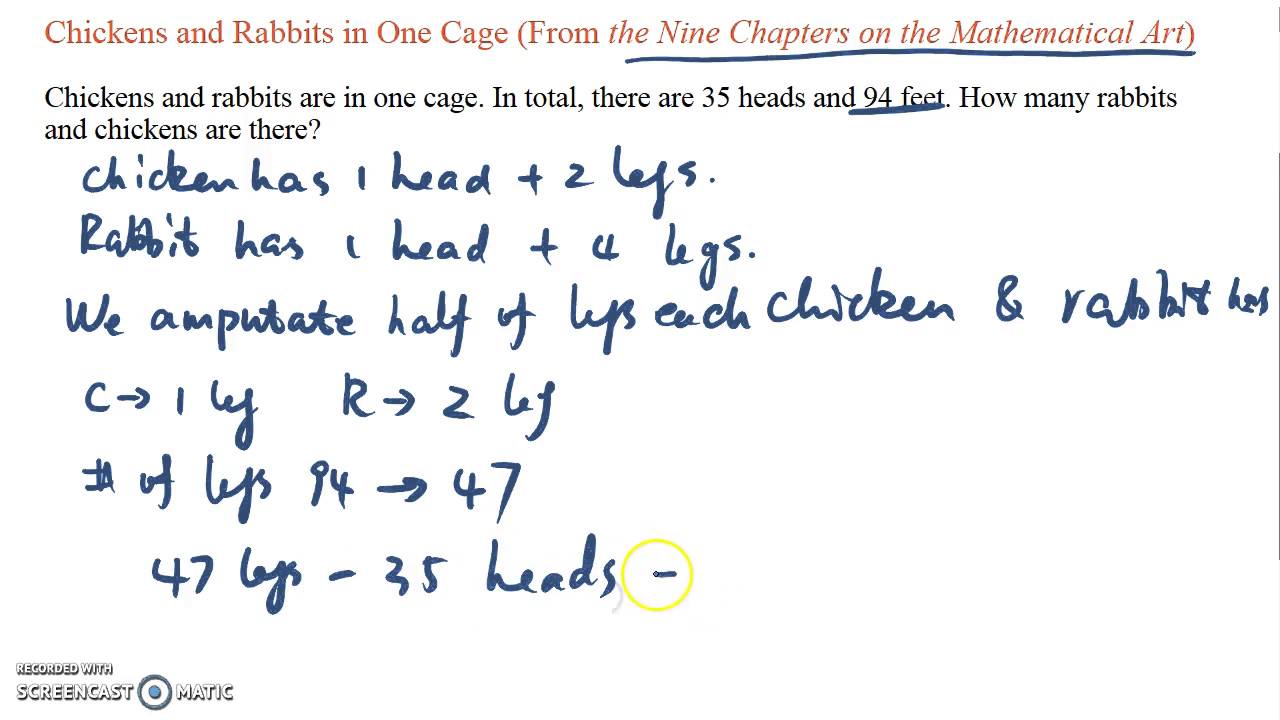 Chickens and Rabbits in One Cage (From the Nine Chapters on the Mathematical Art)
Chickens and rabbits are in one cage. In total, there are 35 heads and 94 feet. How many rabbits
and chickens are there?
chicken has 1 head + 2 legs.
Rabbit has 1 head + 4 legs.
We amputate half of legs each chicken & rabbit has
C → 1 leg R → 2 leg
# of legs 94 → 47
47 legs - 35 heads -
RECORDED WITH
SCREENCAST MATIC